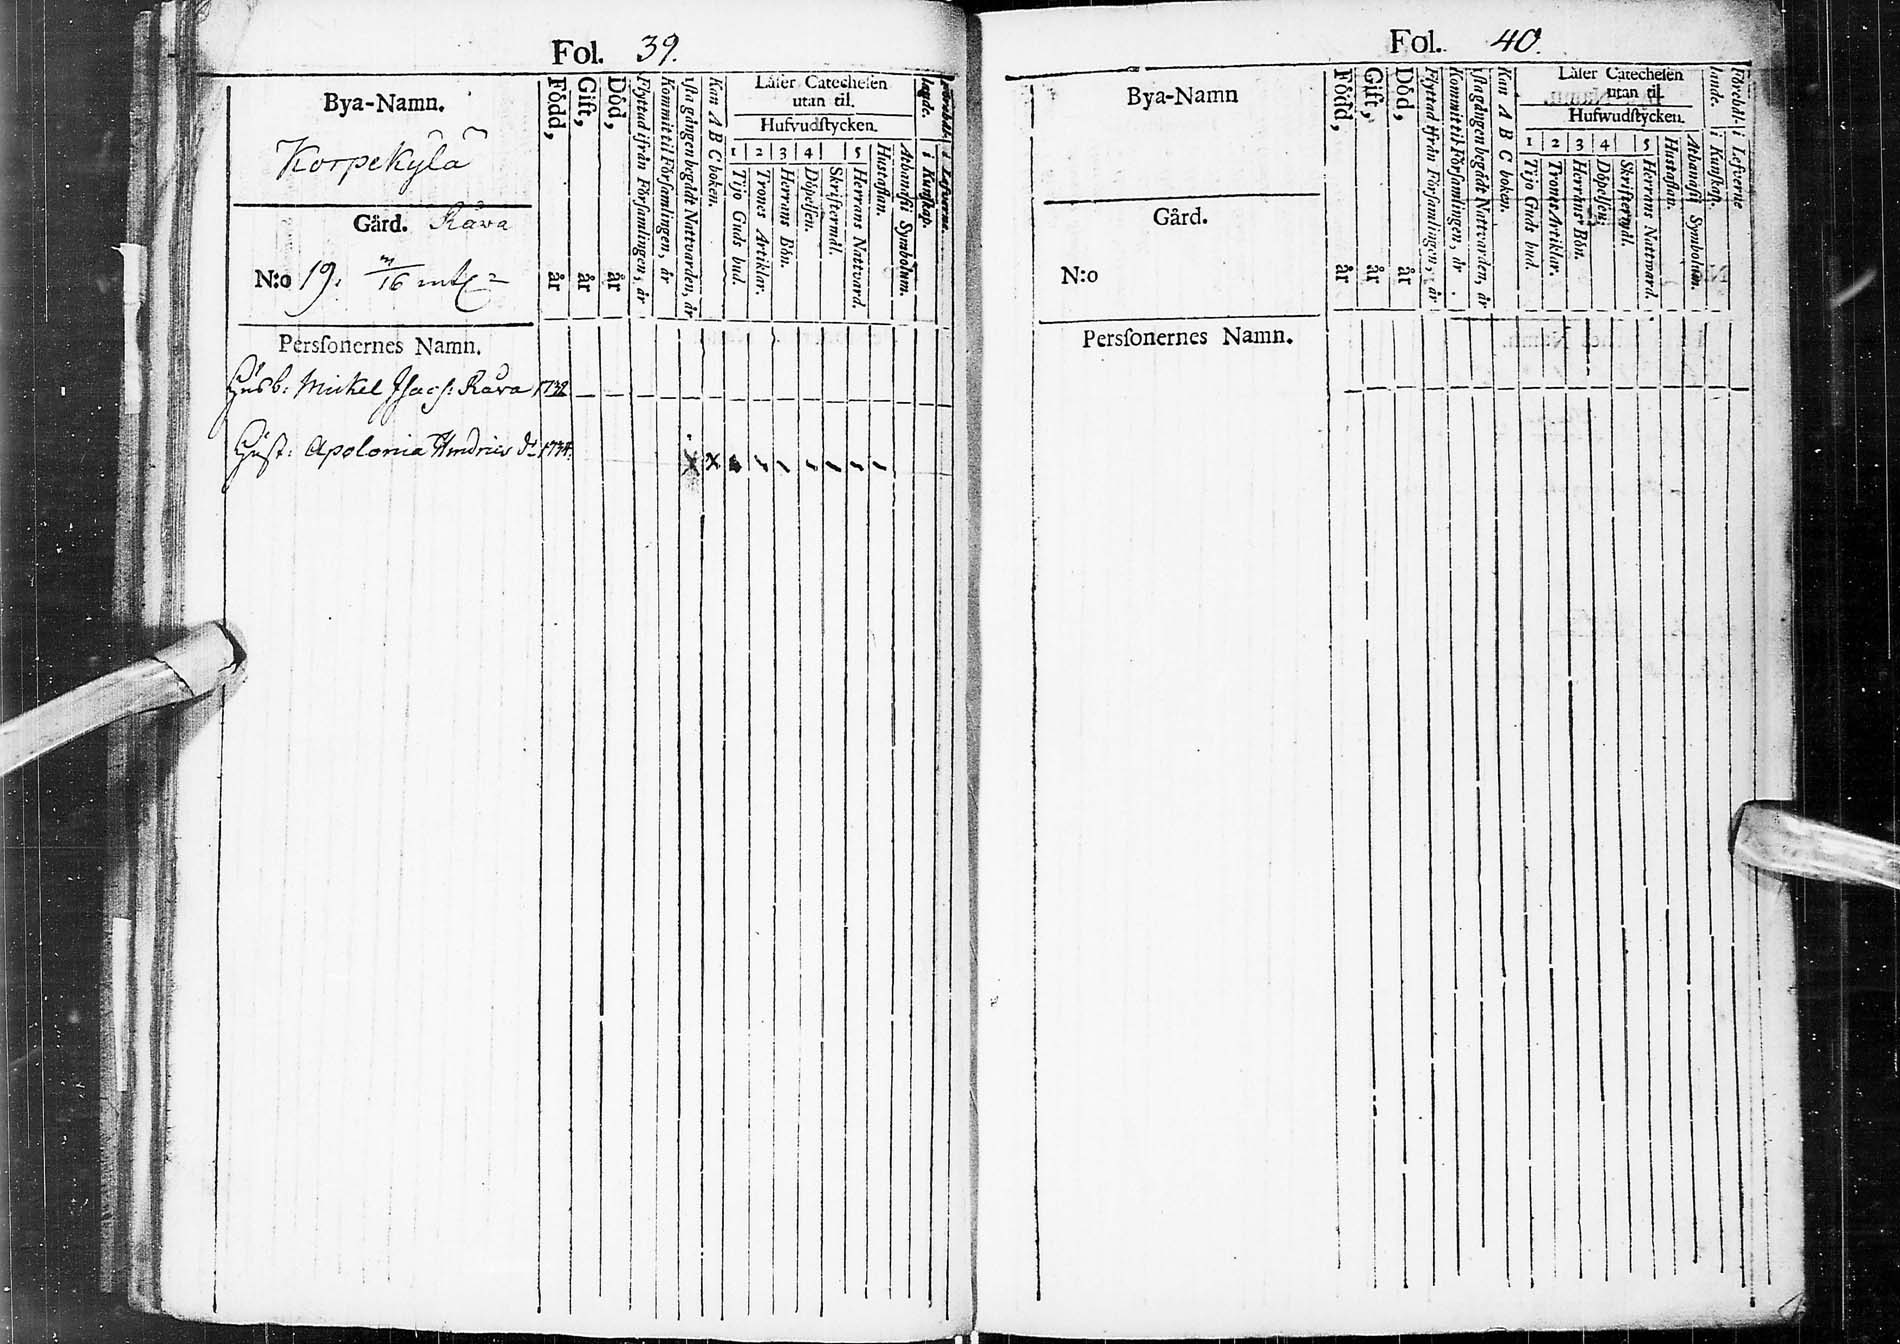 Fol. 39.
Bya-Namn.
Korpekylä
Gård. Råva
N:o 19.
Perſonernes Namn.
Född, år
Gift, år
Död, år
Flyttad ifrån Förſamlingen, år
Kommit til Förſamlingen, år
1ſta gången begådt Nattvarden, år
Kan A B C boken.
Läſer Catecheſen
utan til.
Hufvudſtycken.
1 2 3 4 5
Tijo Guds bud.
Trones Artiklar.
Herrans Bön.
Döpelſen.
Skriftermål.
Herrans Nattvard.
Huſtaflan.
Athanaſii Symbolum.
Förehållande.
i Kunſkap.
i Lefverne.
Huſb: Mickel Iſacſ: Råva 1732
Huſt: Apolonia Hindrics dr 1734. x x
Fol. 40.
Bya-Namn
Gård.
N:o
Perſonernes Namn.
Född, år
Gift, år
Död, år
Flyttad ifrån Förſamlingen, år
Kommit til Förſamlingen, år.
1ſta gången begådt Nattvarden, år
Kan A B C boken.
Läſer Catecheſen
utan til.
Hufwudſtycken.
1 2 3 4 5
Tijo Guds bud.
Trones Artiklar.
Herrans Bön.
Döpelſen.
Skriftermål.
Herrans Nattvard.
Huſtaflan.
Athanaſii Symbolum.
Förehållande.
i Kunſkap.
i Lefverne